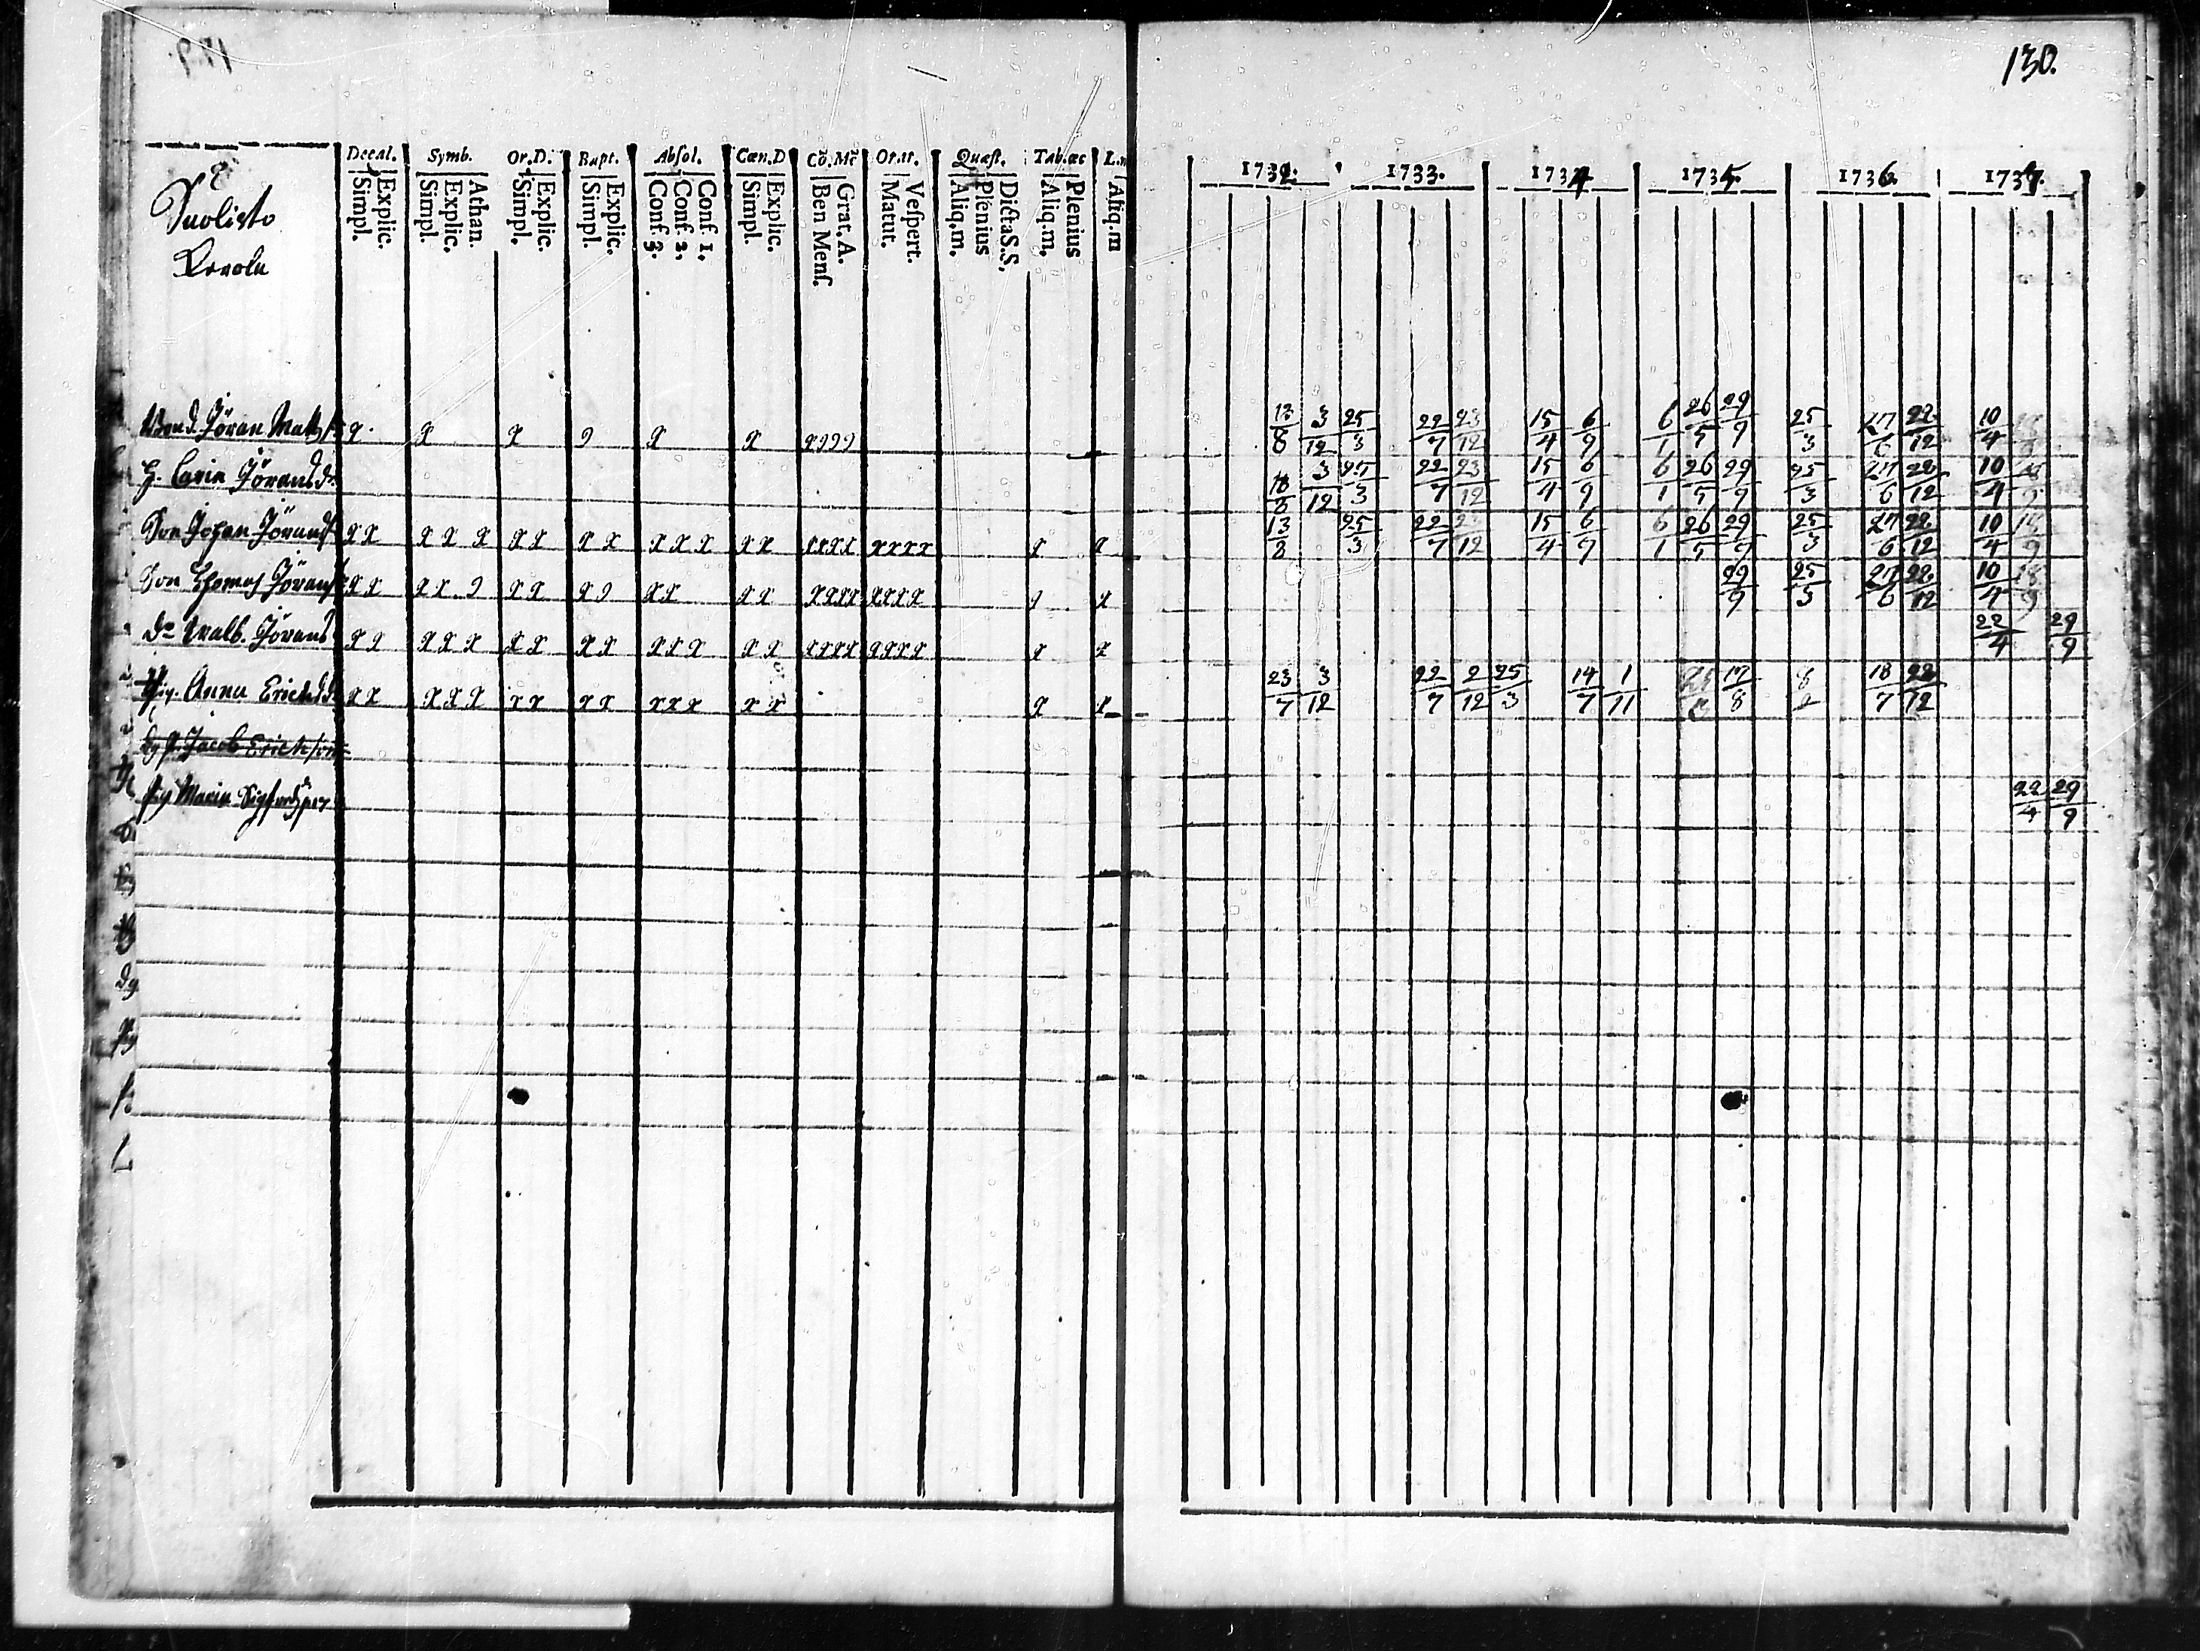 130.
Decal. Symb. Or.D. Bapt. Absol. Cœn.D Co.Mc Orat. Quæst. Tab.œc
Explic. Simpl.
Athan. Explic. Simpl.
Explic. Simpl.
Explic. Simpl.
Conf 1. Conf 2. Conf 3.
Explic. Simpl.
Grat. A. Ben Menſ.
Veſpert. Matut.
DictaS.S. Plenius Aliq.m.
Plenius Aliq.m.
Aliq.m
1732. 1733. 1734 1735. 1736. 1737.
Suolisto
Jöran x x x 9 x x x999 13/8 3/12 25/3 22/7 23/12 15/4 6/9 6/1 26/5 29/9 25/3 27/6 22/12 10/4
H. Carin Jöransdr 18/8 3/12 25/3 22/7 23/12 15/4 6/9 6/1 26/5 29/9 25/3 27/6 22/12 10/4
Son Johan Jöranss xx xxx xx xx xxx xx xxxx xxxx x x 13/8 25/3 22/7 23/12 15/4 6/9 6/1 26/5 29/9 25/3 27/6 22/12 10/4 18/9
Son Thomas Jöranss xx xx9 xx x9 xx xx xxxx xxxx 9 x 29/9 25/3 27/6 22/12 10/4 18/9
dr Walb. Jörans xx xxx xx xx xxx xx xxxx xxxx x x 22/4 29/9
Pig. Anna Ericksd. xx xxx xx xx xxx xx x x 23/7 3/12 22/7 2/12 25/3 14/7 1/11 17/8 18/7 22/12
Jacob Erichson
Pig Maria Sigfreds 22/4 29/9